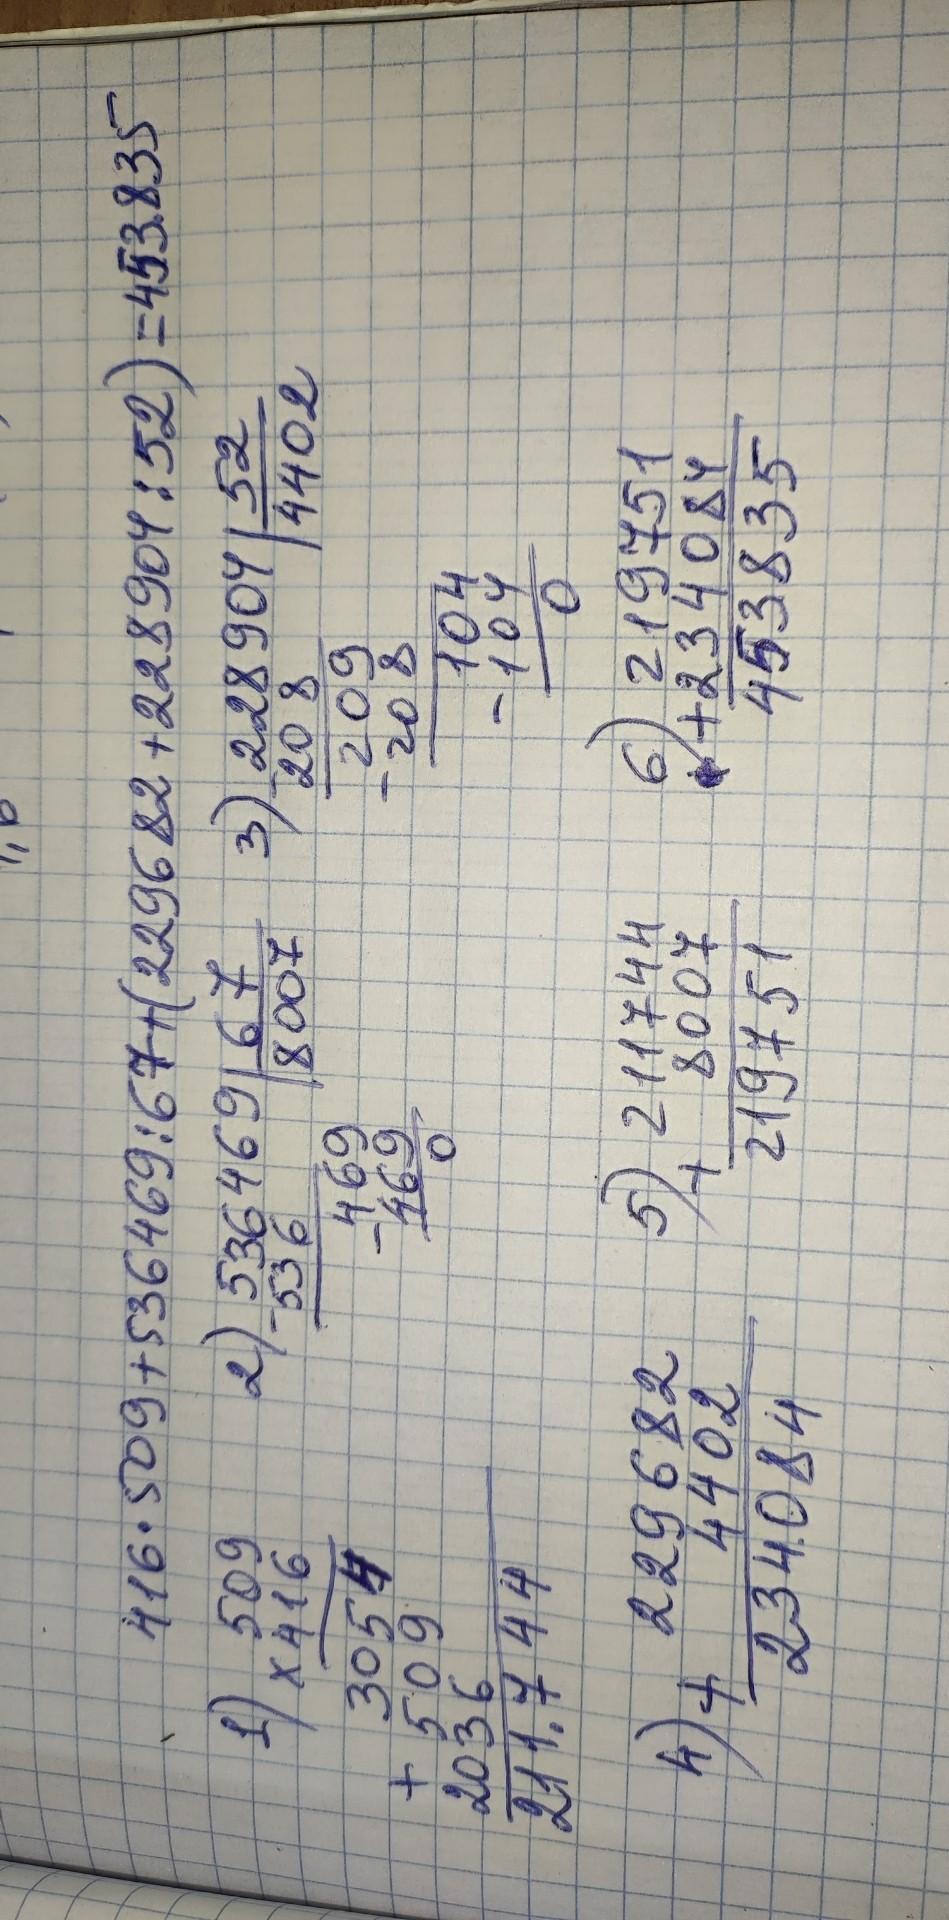 416·509+536469:67+(229682+228904:52)=453835
1) 509
×416
3054
+ 509
2036
211744
2) 536469 | 67
-536 | 8007
-469
469
0
3) 228904 | 52
-208 | 4402
-209
208
-104
104
0
4) 229682
+ 4402
234084
5) 211744
+ 8007
219751
6) 219751
+234084
453835